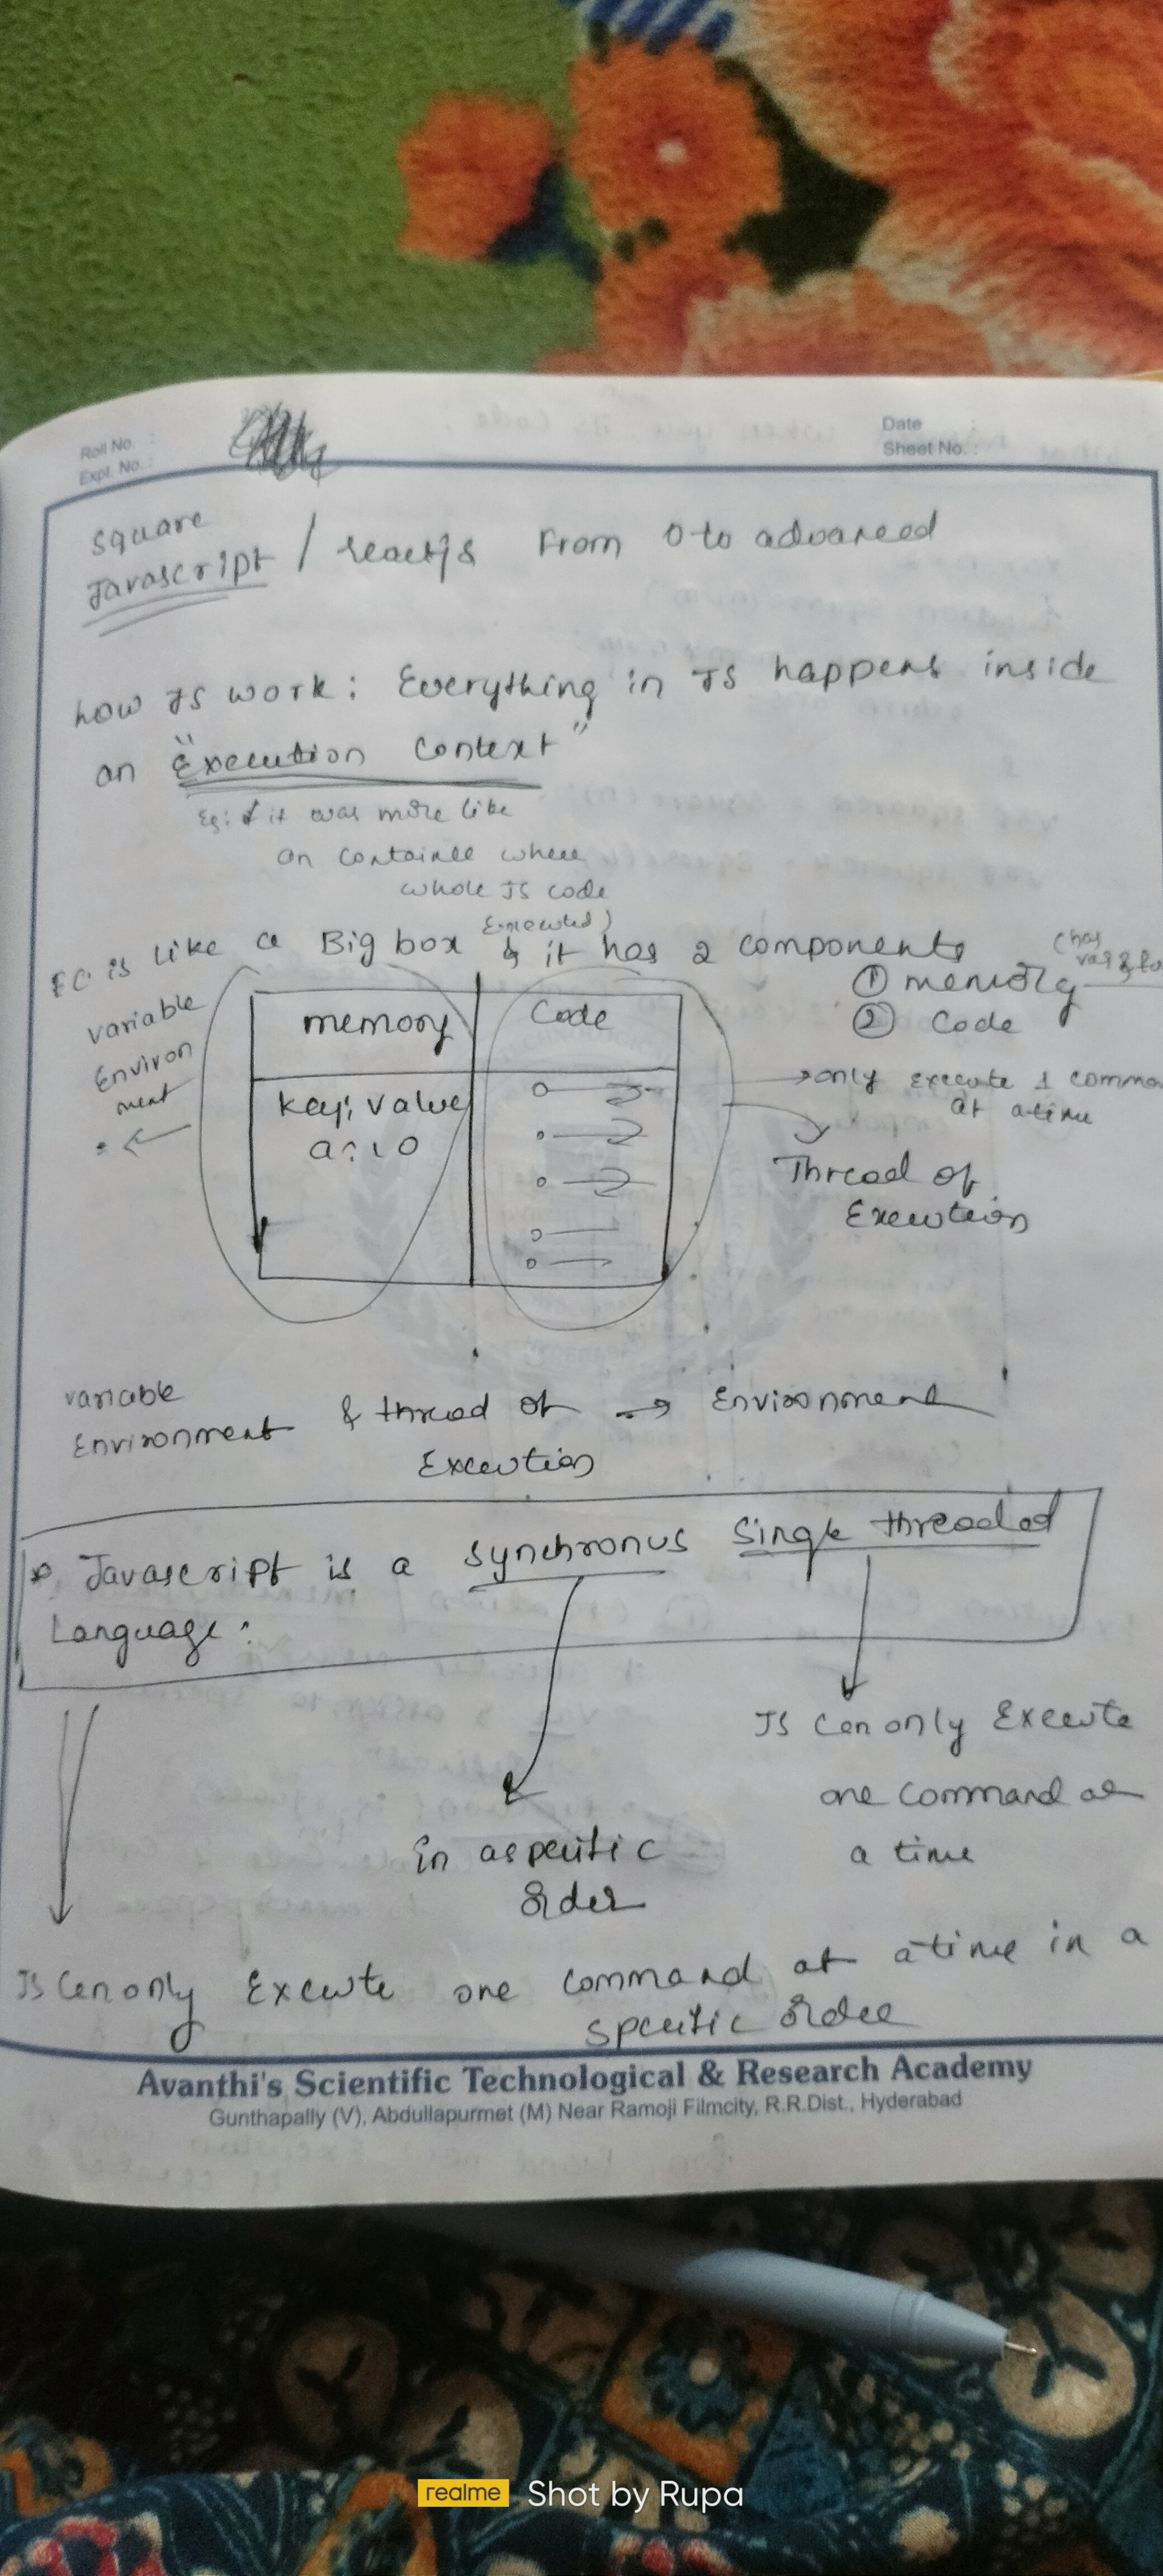 Roll No. :
Expt. No. :
Date
Sheet No. :
Square
Javascript / reactjs From 0 to advanced
how JS work: Everything in JS happens inside
an "Execution Context"
Eg: it was more like
an container where
whole JS code
Executed)
EC is like a Big box & it has 2 components
(has
var & fu
① memory
② Code
variable
Environ
ment
memory
Code
key: value
a: 10
→ only execute 1 comma
at a time
Thread of
Execution
variable
Environment & thread of → Environment
Execution
* Javascript is a Synchronus Single threaded
Language:
JS Can only Execute
one command at
a time
in a specific
order
JS Can only Execute one command at a time in a
specific order
Avanthi's Scientific Technological & Research Academy
Gunthapally (V), Abdullapurmet (M) Near Ramoji Filmcity, R.R.Dist., Hyderabad
realme Shot by Rupa